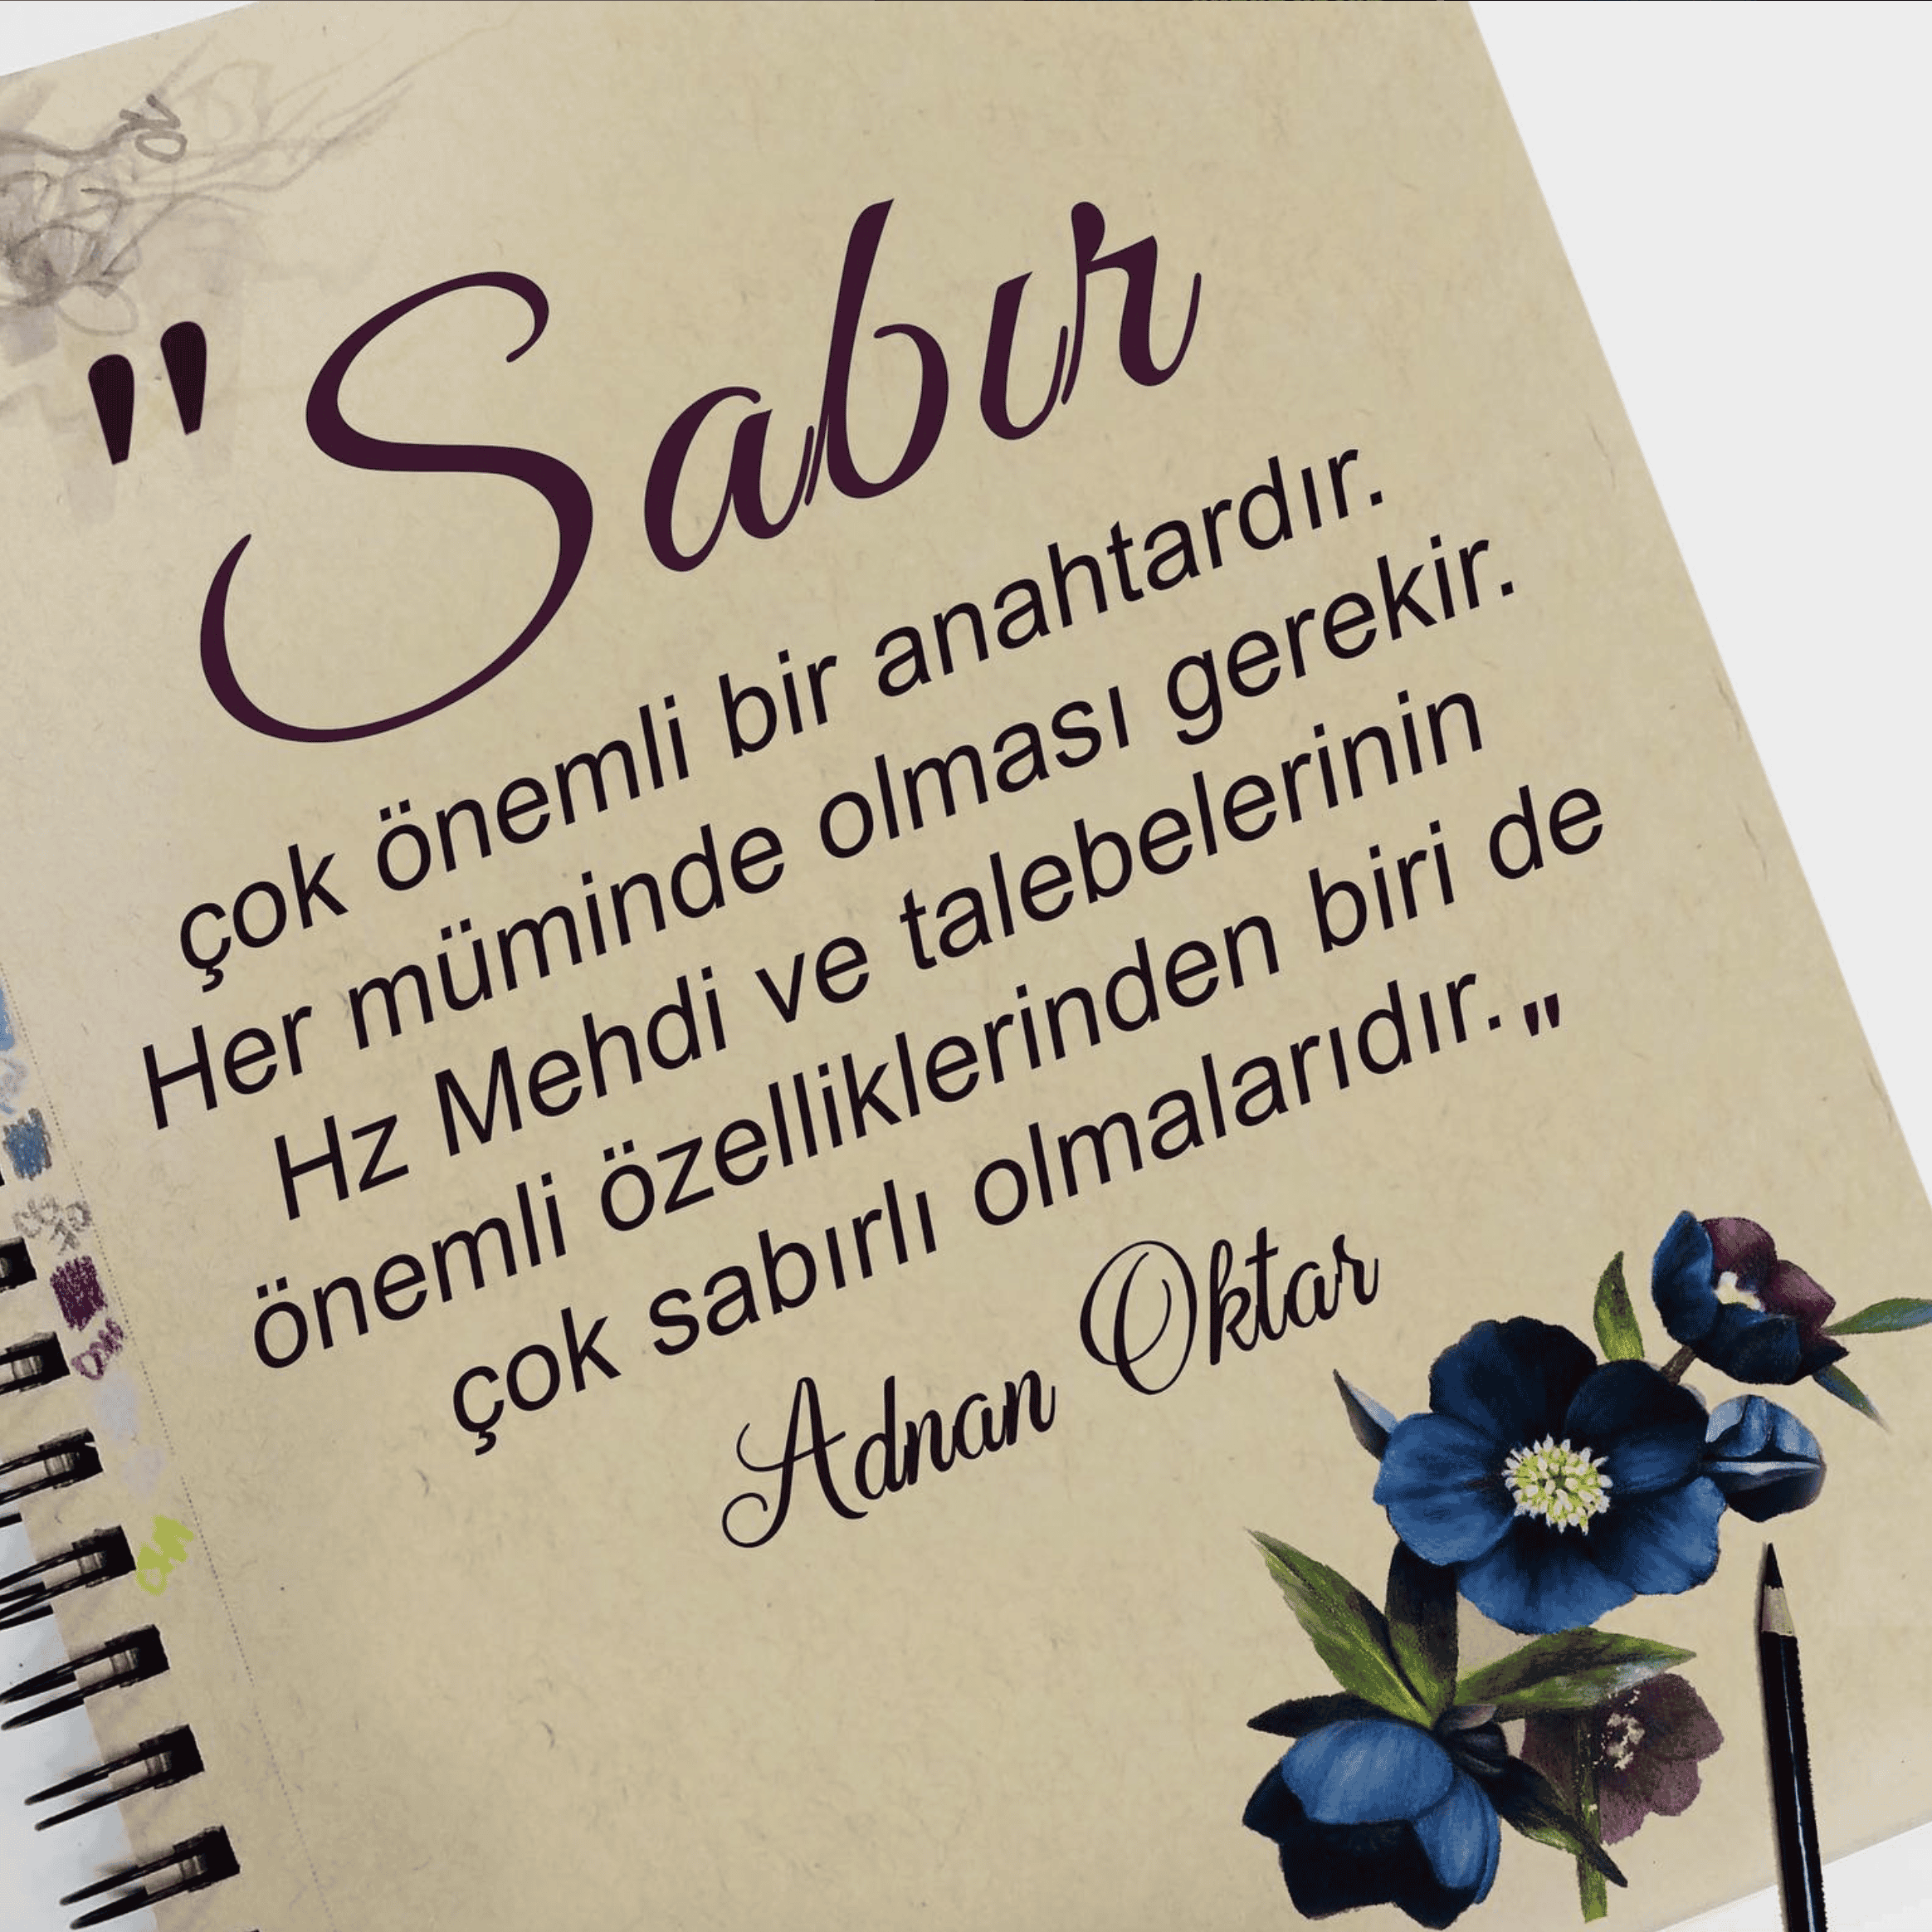 "Sabır
çok önemli bir anahtardır.
Her müminde olması gerekir.
Hz Mehdi ve talebelerinin
önemli özelliklerinden biri de
çok sabırlı olmalarıdır."
Adnan Oktar